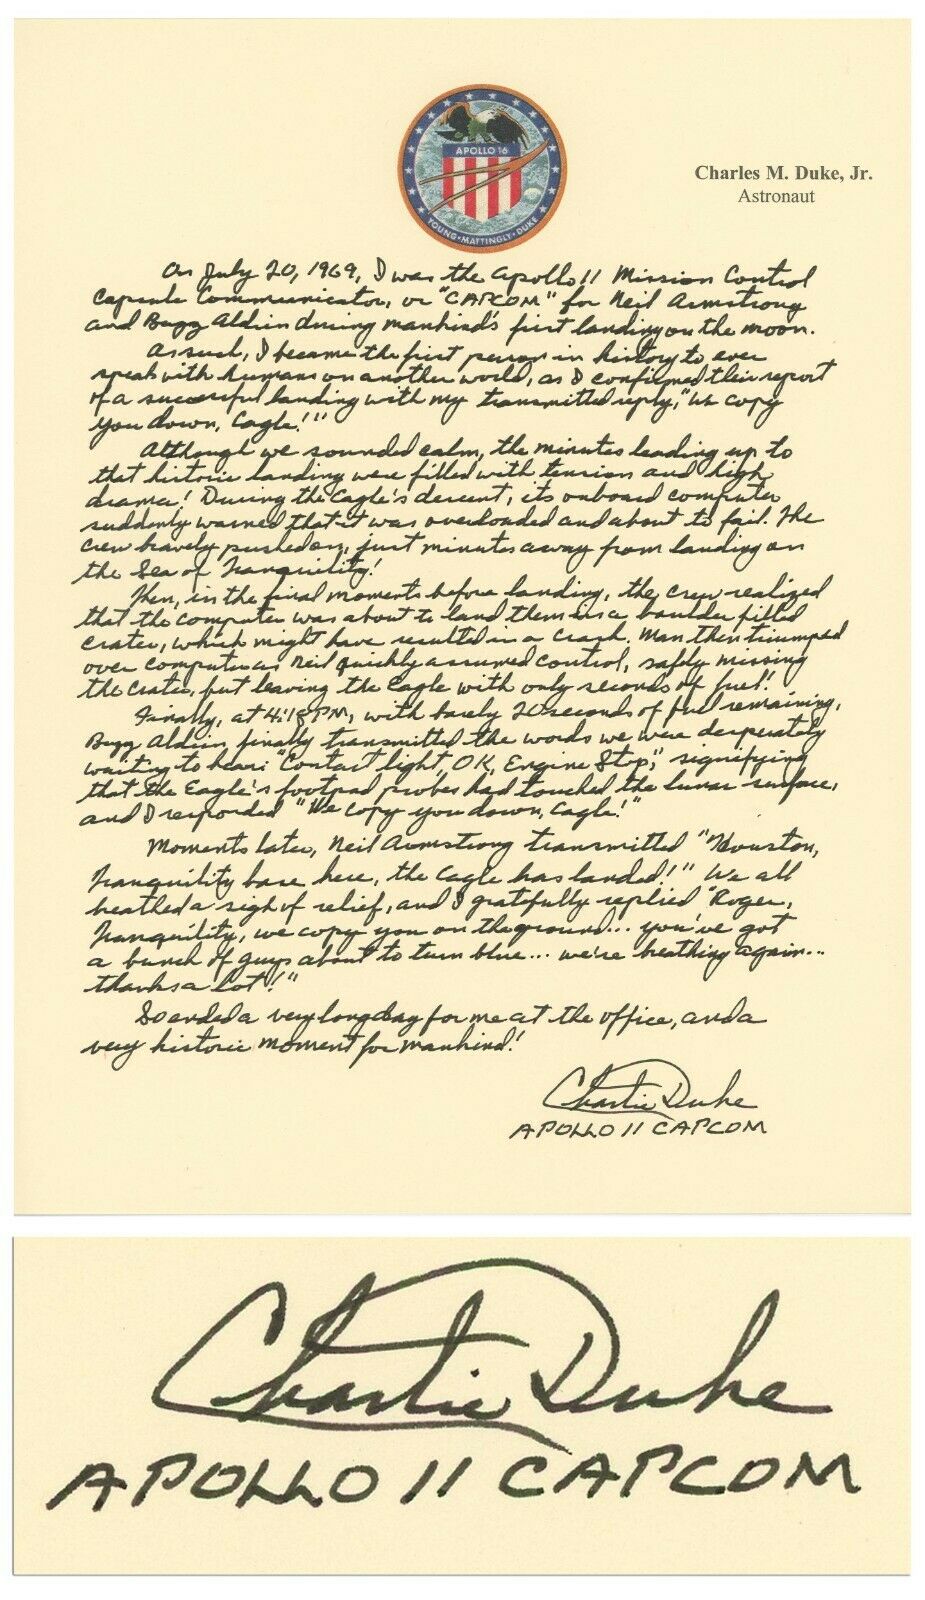 APOLLO 16
YOUNG•MATTINGLY•DUKE
Charles M. Duke, Jr.
Astronaut
On July 20, 1969, I was the Apollo 11 Mission Control
Capsule Communicator, or "CAPCOM" for Neil Armstrong
and Buzz Aldrin during mankind's first landing on the moon.
As such, I became the first person in history to ever
speak with humans on another world, as I confirmed their report
of a successful landing with my transmitted reply, "We copy
you down, Eagle!"
Although we sounded calm, the minutes leading up to
that historic landing were filled with tension and high
drama! During the Eagle's descent, its onboard computer
suddenly warned that it was overloaded and about to fail. The
crew bravely pushed on, just minutes away from landing on
the Sea of Tranquility!
Then, in the final moments before landing, the crew realized
that the computer was about to land them in a boulder filled
crater, which might have resulted in a crash. Man then triumped
over computer as Neil quickly assumed control, safely missing
the crater, but leaving the Eagle with only seconds of fuel!
Finally, at 4:18 PM, with barely 20 seconds of fuel remaining,
Buzz Aldrin finally transmitted the words we were desperately
waiting to hear: "Contact light, OK, Engine Stop", signifying
that the Eagle's footpad probes had touched the lunar surface,
and I responded "We copy you down, Eagle!"
Moments later, Neil Armstrong transmitted "Houston,
Tranquility base here, the Eagle has landed!" We all
breathed a sigh of relief, and I gratefully replied "Roger,
Tranquility, we copy you on the ground... you've got
a bunch of guys about to turn blue... we're breathing again...
thanks a lot!"
So ended a very long day for me at the office, and a
very historic moment for mankind!
Charlie Duke
APOLLO 11 CAPCOM
Charlie Duke
APOLLO 11 CAPCOM